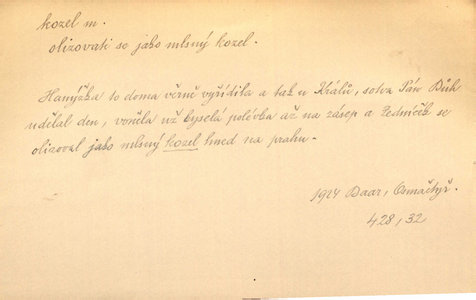 kozel m.
olizovati se jako mlsný kozel.
Hanýžka to doma věrně vyřídila a tak u Králů, sotva Pán Bůh
udělal den, voněla už kyselá polévka až na zásep a Ředníček se
olizoval jako mlsný kozel hned na prahu.
1924 Baar, Osmačtyř.
428, 32